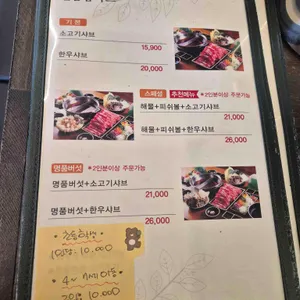 기 본
소고기샤브
15,900
한우샤브
20,000
스페셜 추천메뉴 *2인분이상 주문가능
해물+피쉬볼+소고기샤브
21,000
해물+피쉬볼+한우샤브
26,000
명품버섯 *2인분이상 주문가능
명품버섯+소고기샤브
21,000
명품버섯+한우샤브
26,000
초등학생
1인분. 10,000
4~ 7세 아동
10,000